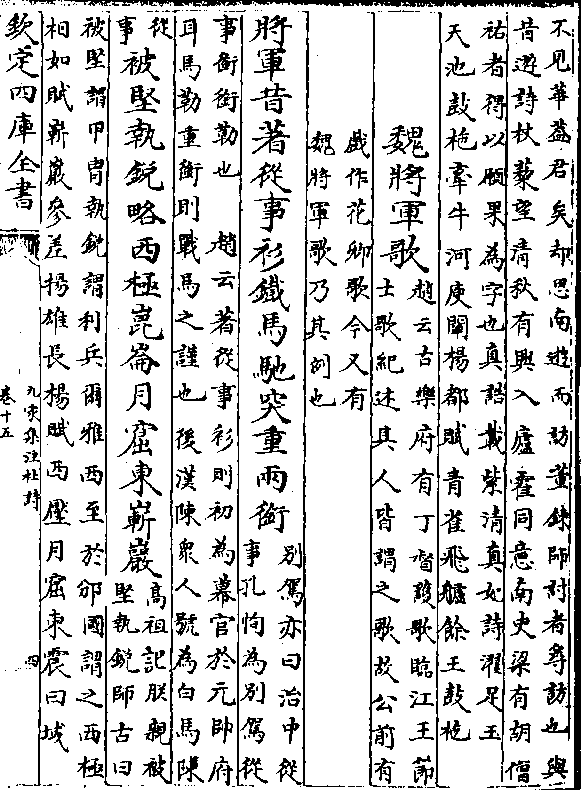 不見華蓋君矣却思南遊而訪董錬師討者尋訪也與
昔遊詩杖藜望清秋有興入廬霍同意南史梁有胡僧
祐者得以頗果為字也真誥載紫清真妃詩濯足玉
天池鼓枻牽牛河庾闡揚都賦青雀飛艫餘王鼓枻
魏將軍歌
趙云古樂府有丁督護歌臨江王節
士歌紀述其人皆謂之歌故公前有
戲作花卿歌今又有
魏將軍歌乃其例也
將軍昔著從事衫鐵馬馳突重兩銜
别駕亦曰治中從
事孔恂為别駕從
事銜銜勒也 趙云著從事衫則初為幕官於元帥府
耳馬勒重銜則戰馬之謹也後漢陳衆人號為白馬陳
從
事
被堅執銳略西極崑崙月窟東嶄巖
高祖記朕親被
堅執銳師古曰
被堅謂甲胄執銳謂利兵爾雅西至於邠國謂之西極
相如賦嶄巖參差揚雄長楊賦西壓月窟東震日域
欽定四庫全書
九家集注杜詩
卷十五
四